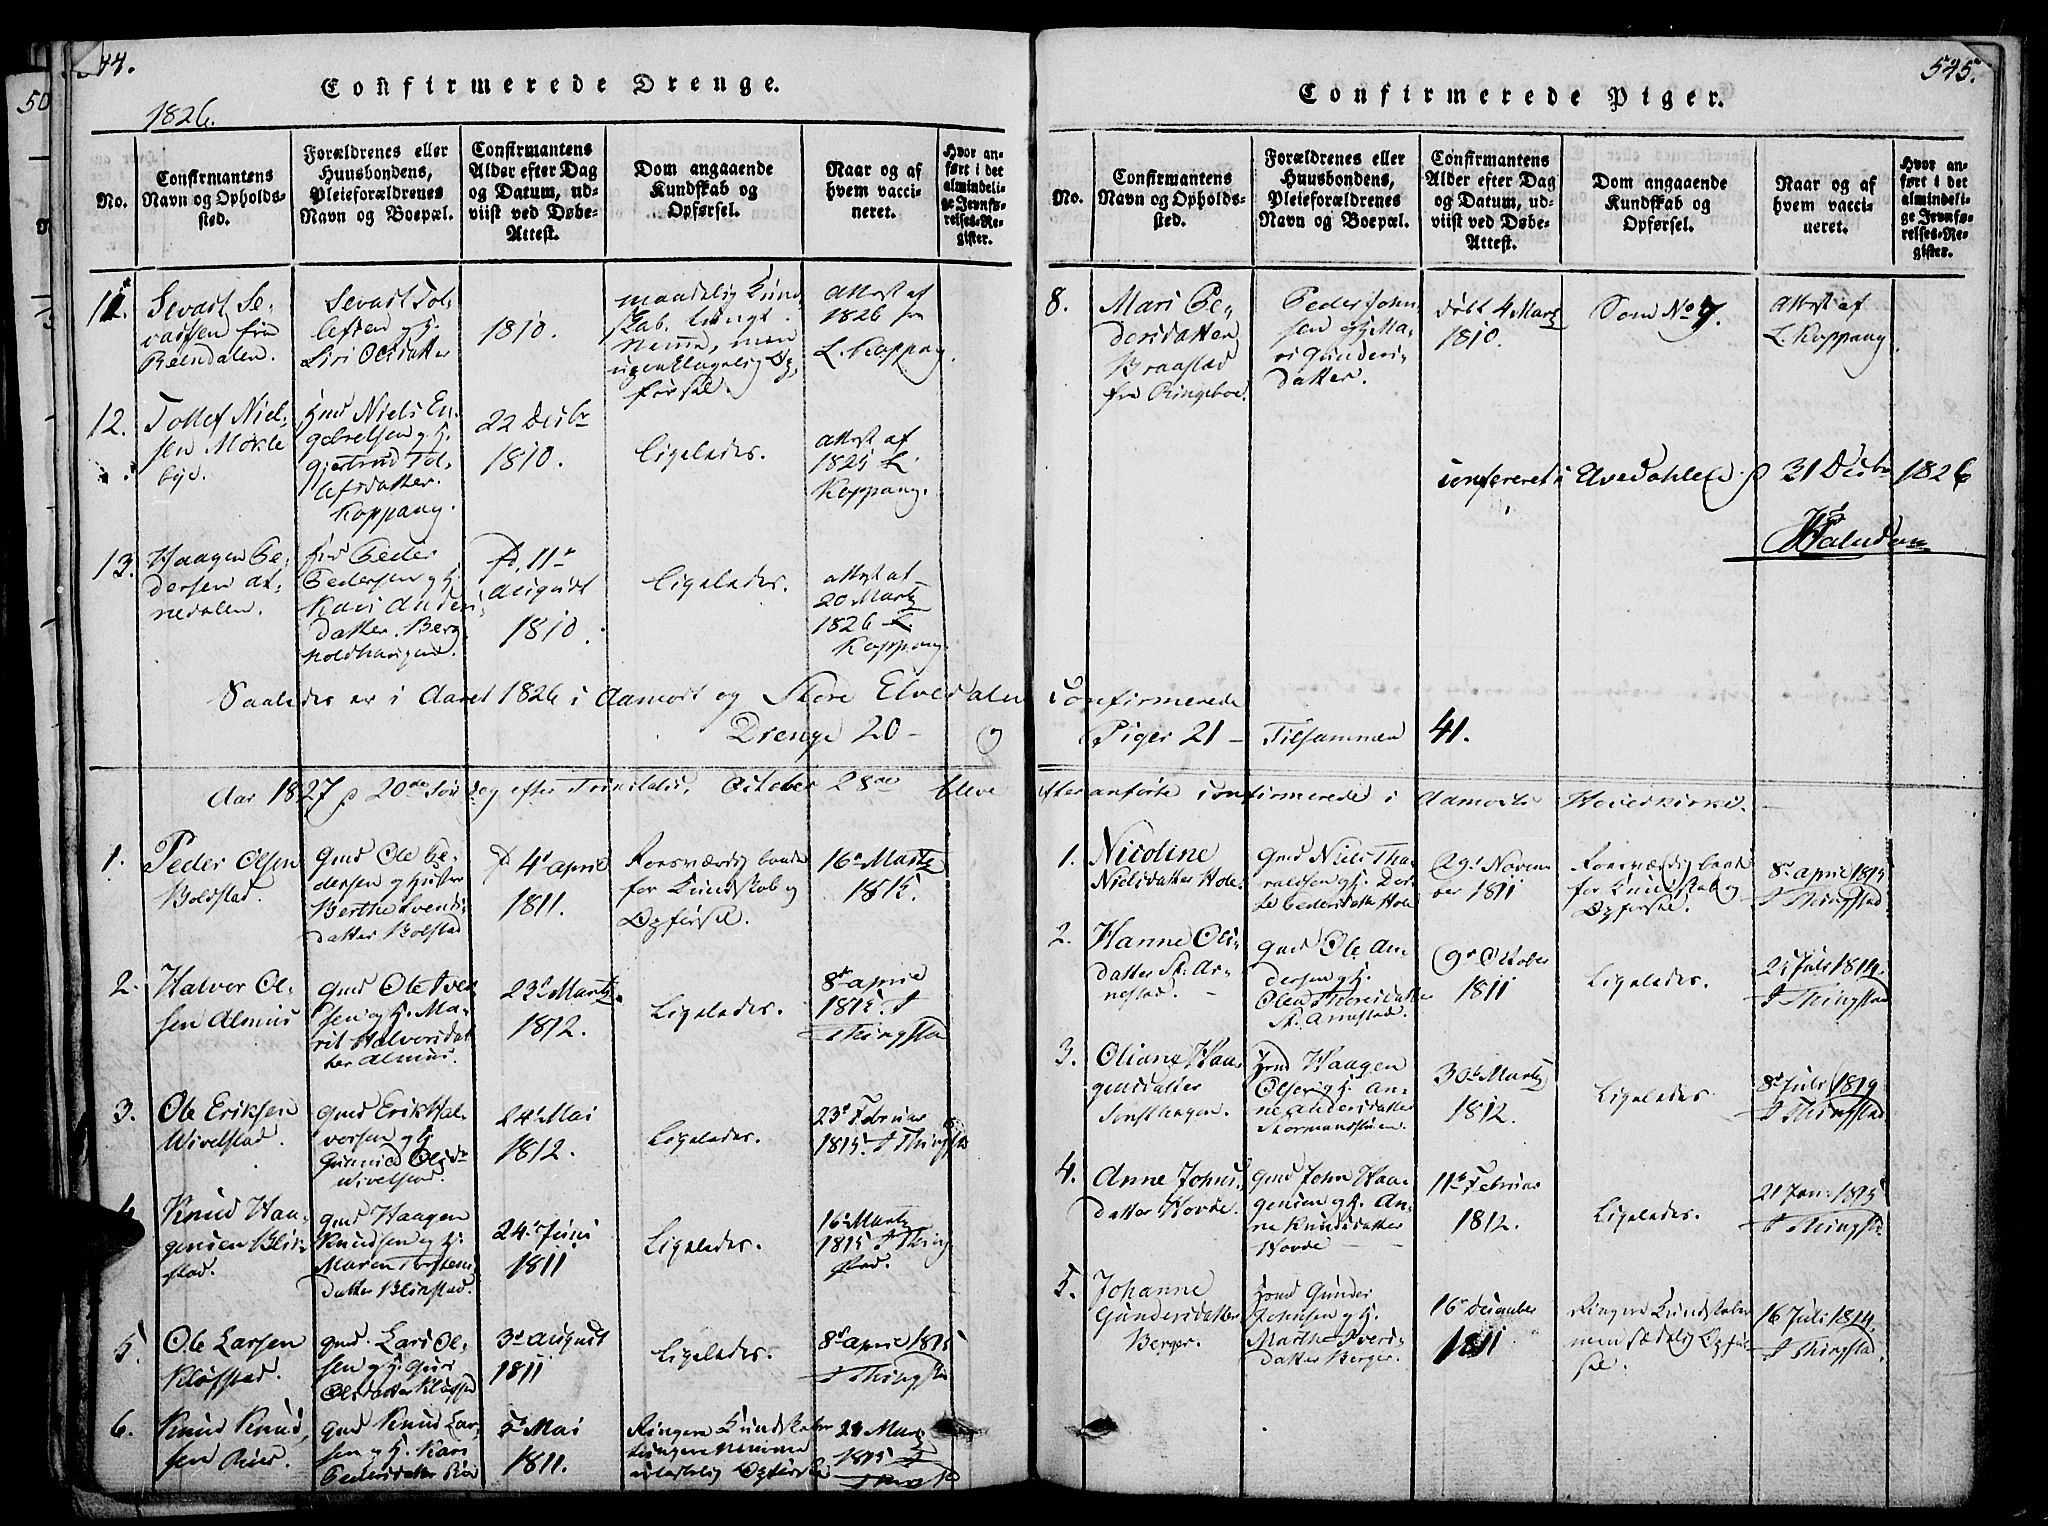 44.
Confirmerede Drenge.
1826.
No.
Confirmantens
Navn og Opholds-
sted.
Forældrenes eller
Huusbondens,
Pleieforældrenes
Navn og Boepæl.
Confirmantens
Alder efter Dag
og Datum, ud-
viist ved Døbe-
Attest.
Dom angaaende
Kundskab og
Opførsel.
Naar og af
hvem vacci-
neret.
Hvor an-
ført i det
almindeli-
ge Jevnfø-
relses-Re-
gister.
11.
Sevast Se-
vatsen fra
Reendalen.
Sevast Tol-
lefsen og H.
Siri Olsdatter
1810.
maadelig Kund-
skab. tungt
Nemme, men
upaaklagelig Op-
førsel.
Attest af
1826 fra
L. Koppang.
12.
Tollef Niel-
sen Mökle
bye.
Hmd Niels En-
gebretsen og H.
Gjertrud Tol-
lefsdatter.
Koppang.
22 Decbr
1810.
Ligelædes.
Attest af
1825 L.
Koppang.
13.
Haagen Pe-
dersen At-
nedalen.
Peder
Pedersen og H.
Kari Anders-
datter. Berg
holdhaugen.
D. 11te
August
1810.
Ligelædes.
Attest af
20 Martz
1826 L.
Koppang.
Saaledes er i Aaret 1826 i Aamodt og Store Elvedalen
Drenge 20 - og
Aar 1827 p 20de Søndag efter Trinitatis, October 28de bleve
1.
Peder Olsen
Bolstad.
Gmd Ole Pe-
dersen og Hustru
Berthe Svends-
datter Bolstad
D 4de April
1811.
Roesværdig baade
for Kundskab og
Opførsel.
16de Martz
1815.
2.
Halvor Ol-
sen Almus
Gmd Ole Iver
sen og H. Ma-
rit Halvorsdat
ter Almus.
23de Martz.
1812.
Ligelædes.
8de April
1815. J
Thingstad
3.
Ole Eriksen
Wivelstad.
Gmd Erik Hal-
vorsen og H.
Gunnild Olsdr
Wivelstad.
24de Mai
1812.
Ligelædes.
23de Februar
1815. J Thingstad
4.
Knud Haa-
gensen Blik-
stad.
Gmd Haagen
Knudsen og H.
Maren Torstens
datter Blikstad.
24de Juni
1811
Ligelædes.
16de Martz
1815 J Thing
stad.
5.
Ole Larsen
Kløfstad.
Gmd. Lars Ol-
sen og H. Guri
Olsdatter Kløfstad
3de August
1811
Ligelædes.
8de April 1815
J Thingstad
6.
Knud Knud-
sen Rue.
Gmd Knud Lar-
sen og H. Kari
Pedersdatter Rue
5te Mai
1811.
Ringere Kundskaber
tungere Nemme
Opførsel
21 Martz
1815 J
Thingst
545.
Confirmerede Piger.
No.
Confirmantens
Navn og Opholds-
sted.
Forældrenes eller
Huusbondens,
Pleieforældrenes
Navn og Boepæl.
Confirmantens
Alder efter Dag
og Datum, ud-
viist ved Døbe-
Attest.
Dom angaaende
Kundskab og
Opførsel.
Naar og af
hvem vacci-
neret.
Hvor an-
ført i det
almindeli-
ge Jevnfø-
relses-Re-
gister.
8.
Mari Pe-
dersdatter
Braastad
fra Ringeboe.
Peder John-
sen og H. Ma-
ri Gunders-
datter.
döbt 4 Martz
1810.
Som No 7.
Attest af
L. Koppang
confereret i Elvedahlen p 31 Decbr 1826
Confirmerede
Piger 21 - Tilsammen 41.
efteranførte confirmerede i Aamodts Hovedkirke.
1.
Nicoline
Nielsdatter Hole.
Gmd Niels Tha-
raldsen og H. Dor-
te Pedersdatter Hole
29de Novem
ber 1811
Roesværdig baade
for Kundskab og
Opførsel.
8de April 1815
J Thingstad
2.
Hanne Ols-
datter St. Ar-
nestad.
Gmd Ole An-
dersen og H.
Olea Thoresdatter
St. Arnestad.
9de October
1811
Ligelædes.
25 Juli 1814.
J Thingstad
3.
Oliane Haa-
gensdatter
Hmd Haagen
Olsen og H. An-
ne Andersdatter
Stormandstuen.
30te Martz
1812.
Ligelædes.
8de Juli 1819
J Thingstad
4.
Anne Johns-
datter Hovde.
Gmd John Haa-
gensen og H. An-
ne Knudsdatter
Hovde
11te Februar
1812.
Ligelædes.
21 Jan: 1815
J Thingstad.
5.
Johanne
Gundersdatter
Berger.
Hmd Gunder
Johnsen og H.
Marthe Ivers-
datter Berger.
16de December
1811
Ringere Kundskaber
men sædelig Opfør-
sel.
16 Juli 1814.
J Thingstad.